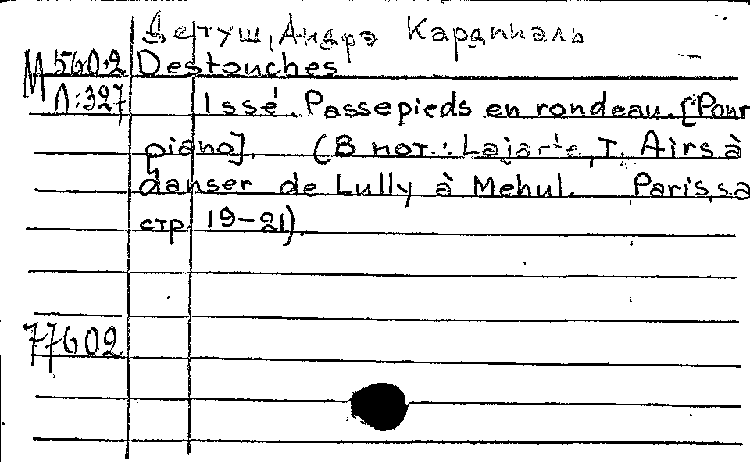 Детуш, Андрэ Кардиналь
М 560.2 Destouches
Л:327 Issé. Passepieds en rondeau. [Pour
piano]. (В нот.: Lajarte, T. Airs à
danser de Lully à Mehul. Paris, sa
стр 19-21).
77602